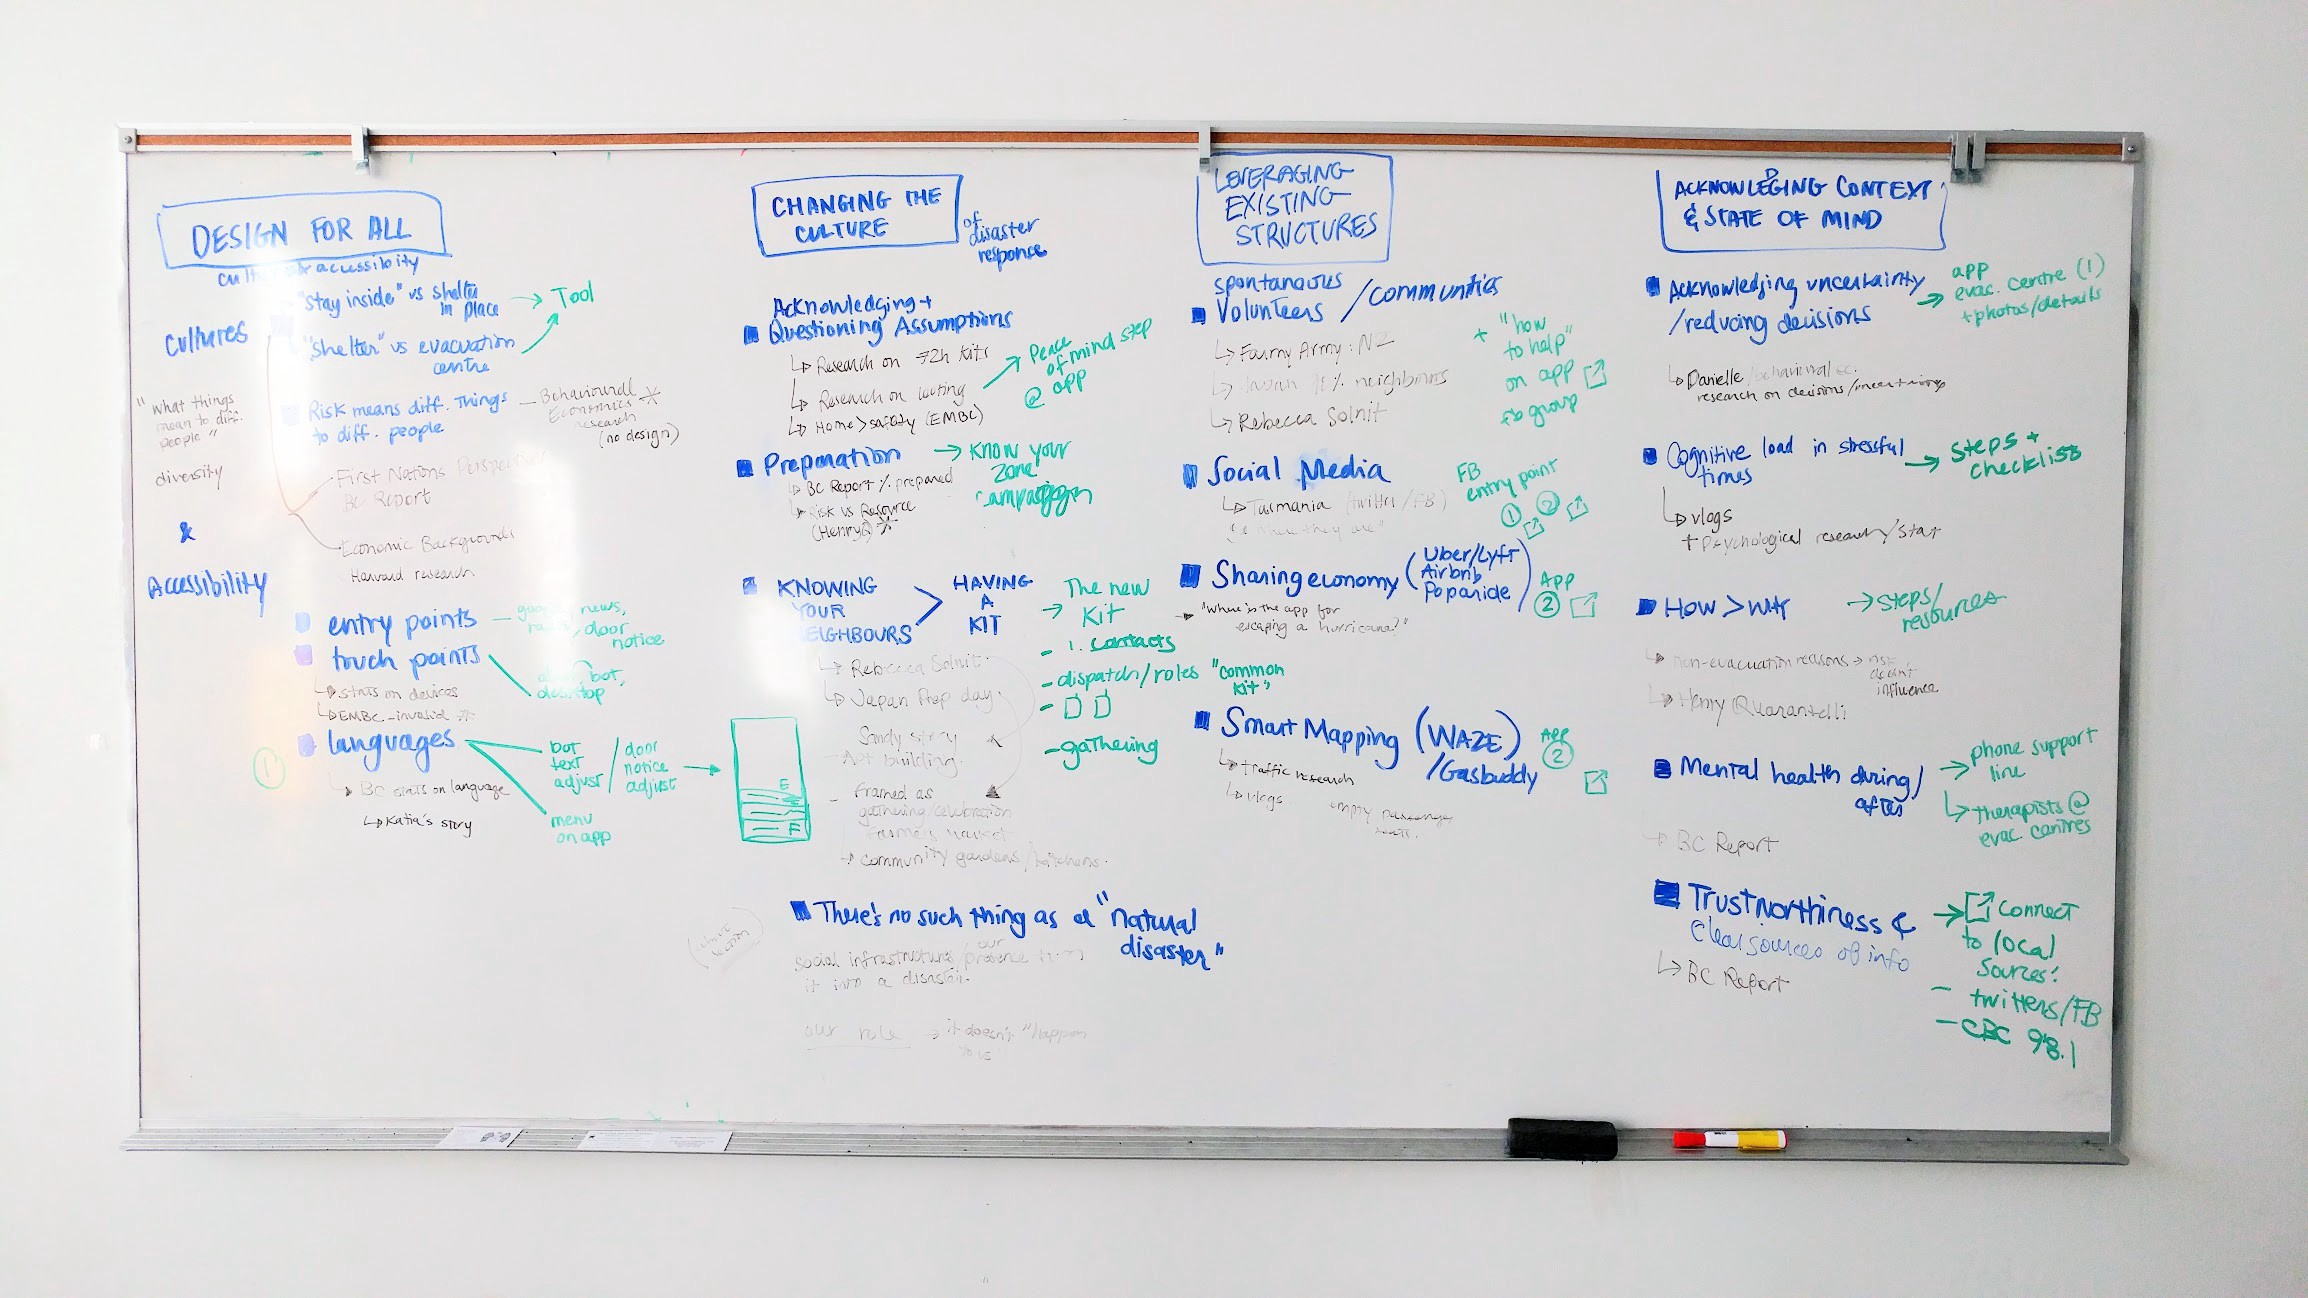 DESIGN FOR ALL
accessibility
"stay inside" vs shelter
in place
→ Tool
cultures
"shelter" vs evacuation
centre
"what things
mean to diff.
people"
Risk means diff. Things
to diff. people
Behavioural
Economics
research
(no design)
diversity
First Nations
BC Report
&
Economic Backgrounds
Harvard research
Accessibility
entry points
news,
door
notice
touch points
bot,
↳ stats on devices
↳ EMBC - invalid
①
languages
bot
text
adjust
/ door
notice
adjust
→
menu
on app
↳ BC stats on language
↳ Katia's story
CHANGING THE
CULTURE
of
disaster
response
Acknowledging +
Questioning Assumptions
↳ Research on 72h kits
↳ Research on looting
↳ Home > safety (EMBC)
→ Peace
of mind step
@ app
Preparation
↳ BC Report % prepared
↳ Risk vs Resource
(Henry Q)
→ Know your
zone
campaign
KNOWING
YOUR
NEIGHBOURS
>
HAVING
A
KIT
→ The new
Kit
- 1. contacts
- dispatch/roles "common
kit"
- gathering
↳ Rebecca Solnit
↳ Japan Prep day
Sandy story
Apt building
- Framed as
gathering/celebration
Farmers market
↳ community gardens/kitchens
E
F
There's no such thing as a "natural
disaster"
social infrastructure/our presence turns
it into a disaster.
our role → it doesn't "happen
to us
LEVERAGING
EXISTING
STRUCTURES
spontanaous
Volunteers /communities
↳ Farmy Army: NZ
% neighbours
↳ Rebecca Solnit
+ "how
to help"
on app
fb group
Social Media
↳ Tasmania (twitter/FB)
where they are"
FB
entry point
① ②
Sharing economy (Uber/Lyft
Airbnb
Poparide)
APP
②
→ "Where is the app for
escaping a hurricane?"
Smart Mapping (WAZE)
/Gasbuddy
APP
②
↳ traffic research
↳ vlogs
empty passenger
seats.
ACKNOWLEDGING CONTEXT
& STATE OF MIND
Acknowledging uncertainty
/reducing decisions
→ app
evac. centre (1)
+ photos/details
↳ Danielle/behavioral ec.
research on decisions/uncertainty
Cognitive load in stressful
times
→ steps +
checklist
↳ vlogs
+ Psychological research/stat
How > Why
→ steps/
resources
↳ non-evacuation reasons → risk
doesn't
influence
↳ Henry Quarantelli
Mental health during/
after
→ phone support
line
↳ therapists @
evac centres
↳ BC Report
Trustworthiness &
Clear sources of info
↳ BC Report
→ Connect
to local
sources:
- twitters/FB
- CBC 98.1